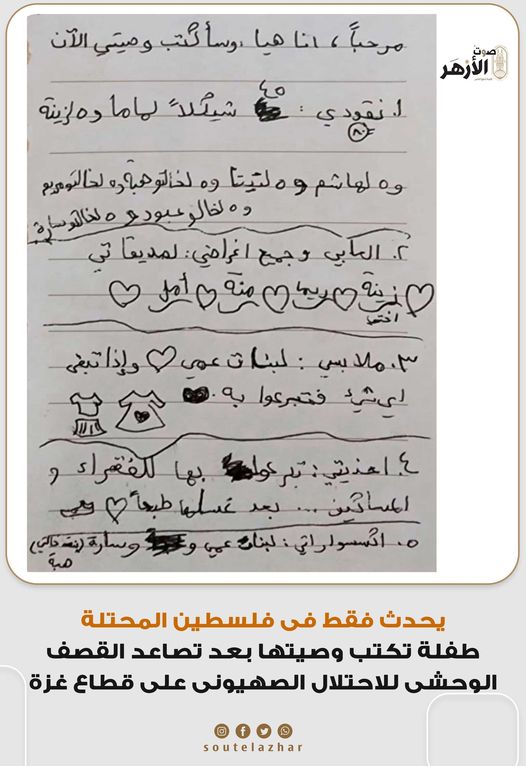 صوت
الأزهر
مرحباً، انا هيا، وسأكتب وصيتي الآن
١. نقودي: ٤٥ شيكلاً لماما و٥ لزينة
٨٠
و٥ لهاشم و٥ لتيتا و٥ لخالتو هبة و٥ لخالتو مريم
و٥ لخالو عبود و٥ لخالتو سارة
٢. العابي وجميع اغراضي: لصديقاتي
زينة ريما منة أمل
اختي
٣. ملابسي: لبنات عمي وإذا تبقى
اي شيء فتبرعوا به.
٤. احذيتي: تبرعوا بها للفقراء و
المساكين ... بعد غسلها طبعاً
٥. اكسسواراتي: لبنات عمي و وسارة
هبة
يحدث فقط فى فلسطين المحتلة
طفلة تكتب وصيتها بعد تصاعد القصف
الوحشى للاحتلال الصهيونى على قطاع غزة
soutelazhar